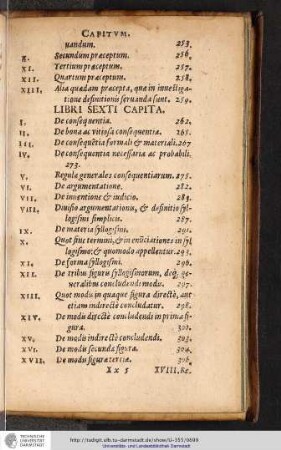 CAPITVM.
uandum. 253.
X. Secundum præceptum. 256.
XI. Tertium præceptum. 257.
XII. Quartum præceptum. 258.
XIII. Alia quædam præcepta, quæ in inuestiga-
tione definitionis seruanda sunt. 259.
LIBRI SEXTI CAPITA.
I. De consequentia. 262.
II. De bona ac vitiosa consequentia. 265.
III. De consequẽtia formali & materiali. 267
IV. De consequentia necessaria ac probabili.
273.
V. Regulæ generales consequentiarum. 275.
VI. De argumentatione. 282.
VII. De inuentione & iudicio. 283.
VIII. Diuisio argumentationis, & definitio syl-
logismi simplicis. 287.
IX. De materia syllogismi. 291.
X. Quot sint termini, & enũciationes in syl
logismo: & quomodo appellentur. 293.
XI. De forma syllogismi. 296.
XII. De tribus figuris syllogismorum, deq́; ge-
neralibus concludendi modis. 297.
XIII. Quot modis in quaque figura directè, aut
etiam indirectè concludatur. 298.
XIV. De modis directè concludendi in prima fi-
gura. 301.
XV. De modis indirectè concludendi. 303.
XVI. De modis secundæ figuræ. 304.
XVII. De modis figuræ tertiæ. 306.
Xx 5 XVIII. Re.
http://tudigit.ulb.tu-darmstadt.de/show/G-351/0699
Universitäts- und Landesbibliothek Darmstadt